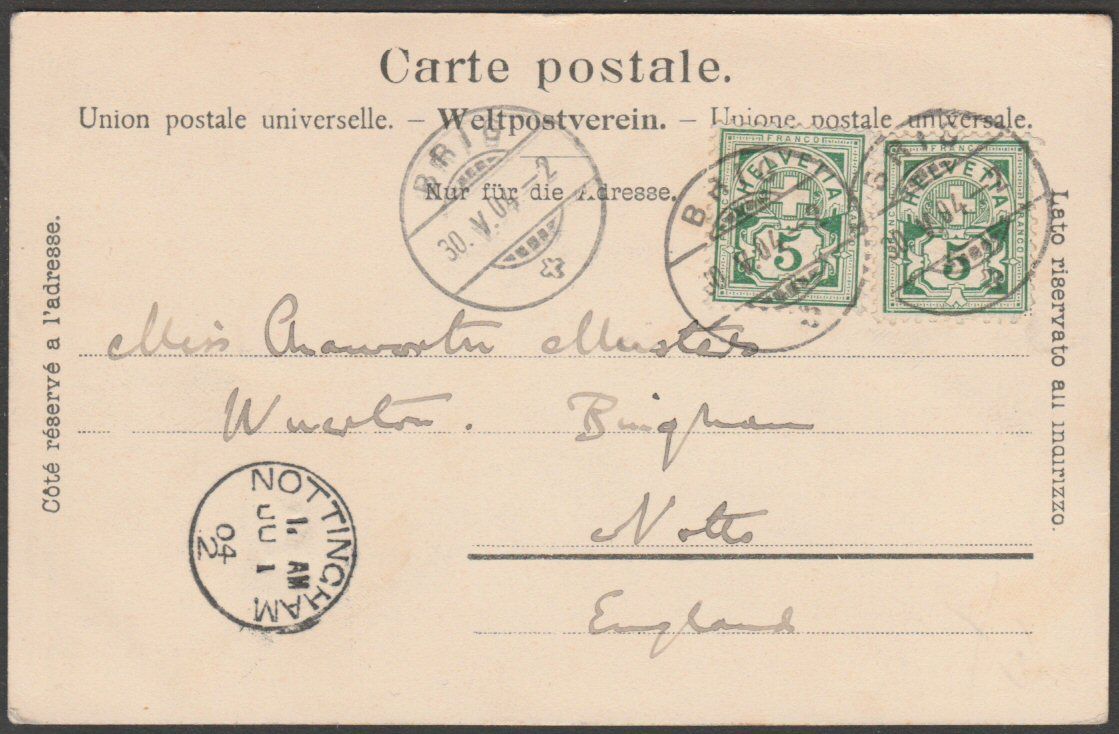 Carte postale.
Union postale universelle. – Weltpostverein. – Unione postale universale.
Nur für die Adresse.
Côté réservé a l'adresse.
Lato riservato all indirizzo.
BRIG
30.V.04–2
FRANCO
HELVETIA
5
FRANCO
BRIG
30.V.04
FRANCO
HELVETIA
5
FRANCO
BRIG
30.V.04
Miss Chaworth Musters
Wiverton. Bingham
Notts
England
NOTTINGHAM
1. AM
JU 1
04
2